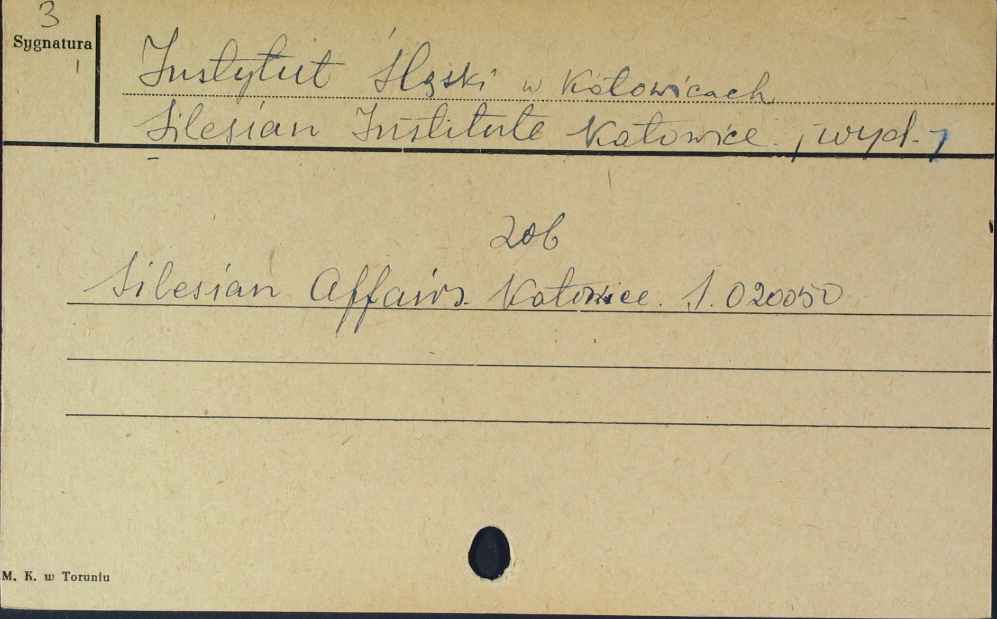 3
Sygnatura
Instytut Śląski w Katowicach
Silesian Institute Katowice. [wyd.]
zob
Silesian Affairs. Katowice. S. 020050
M. K. w Toruniu